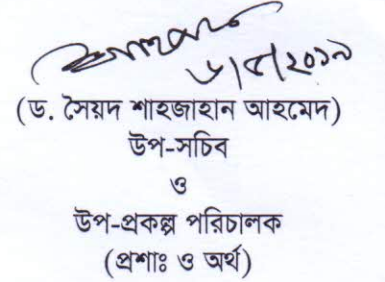 ৬/৫/২০১৯
(ড. সৈয়দ শাহজাহান আহমেদ)
উপ-সচিব
ও
উপ-প্রকল্প পরিচালক
(প্রশাঃ ও অর্থ)